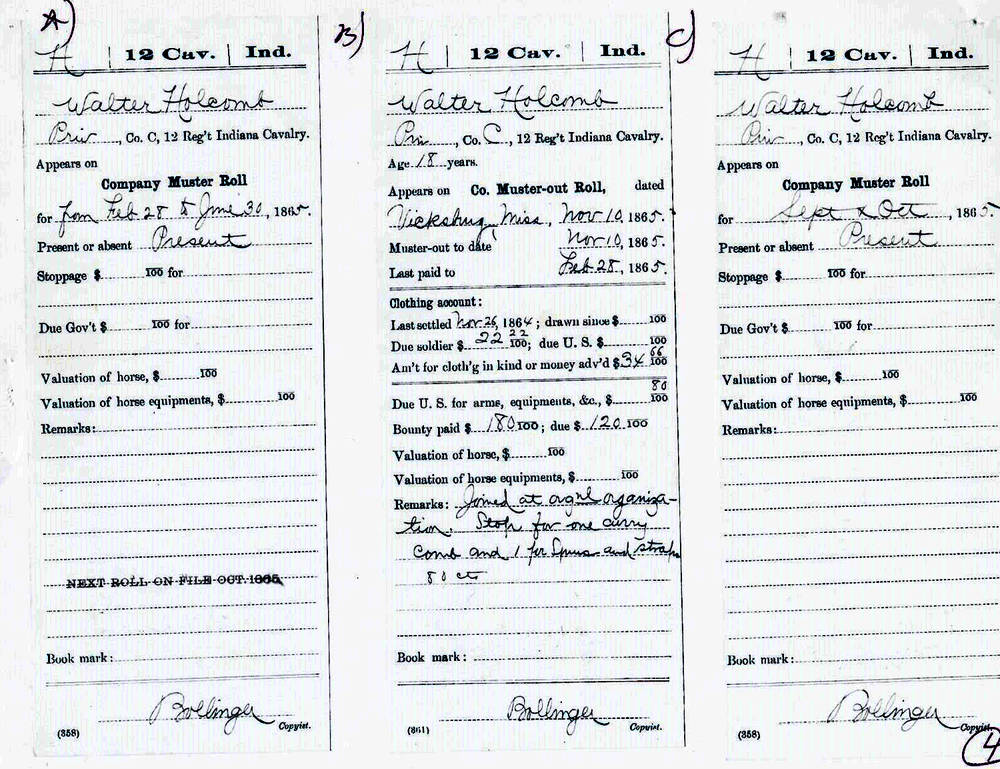 A)
H | 12 Cav. | Ind.
Walter Holcomb
Priv, Co. C, 12 Reg't Indiana Cavalry.
Appears on
Company Muster Roll
for from Feb 28 to June 30, 1865.
Present or absent Present
Stoppage $ 100 for
Due Gov't $ 100 for
Valuation of horse, $ 100
Valuation of horse equipments, $ 100
Remarks:
NEXT ROLL ON FILE OCT. 1865.
Book mark:
Bollinger
Copyist.
(358)
B)
H | 12 Cav. | Ind.
Walter Holcomb
Priv, Co. C, 12 Reg't Indiana Cavalry.
Age 18 years.
Appears on Co. Muster-out Roll, dated
Vicksburg Miss, Nov 10, 1865.
Muster-out to date Nov 10, 1865.
Last paid to Feb 28, 1865.
Clothing account:
Last settled Nov 26, 1864; drawn since $ 100
Due soldier $ 22 22/100; due U. S. $ 100
Am't for cloth'g in kind or money adv'd $ 34 66/100
Due U. S. for arms, equipments, &c., $ 80/100
Bounty paid $ 180 100; due $ 120 100
Valuation of horse, $ 100
Valuation of horse equipments, $ 100
Remarks: Joined at orgnl organiza-
tion. Stop for one curry
comb and 1 pr Spurs and straps
80 cts
Book mark:
Bollinger
Copyist.
(861)
C)
H | 12 Cav. | Ind.
Walter Holcomb
Priv, Co. C, 12 Reg't Indiana Cavalry.
Appears on
Company Muster Roll
for Sept & Oct, 1865.
Present or absent Present
Stoppage $ 100 for
Due Gov't $ 100 for
Valuation of horse, $ 100
Valuation of horse equipments, $ 100
Remarks:
Book mark:
Bollinger
Copyist.
(358)
4